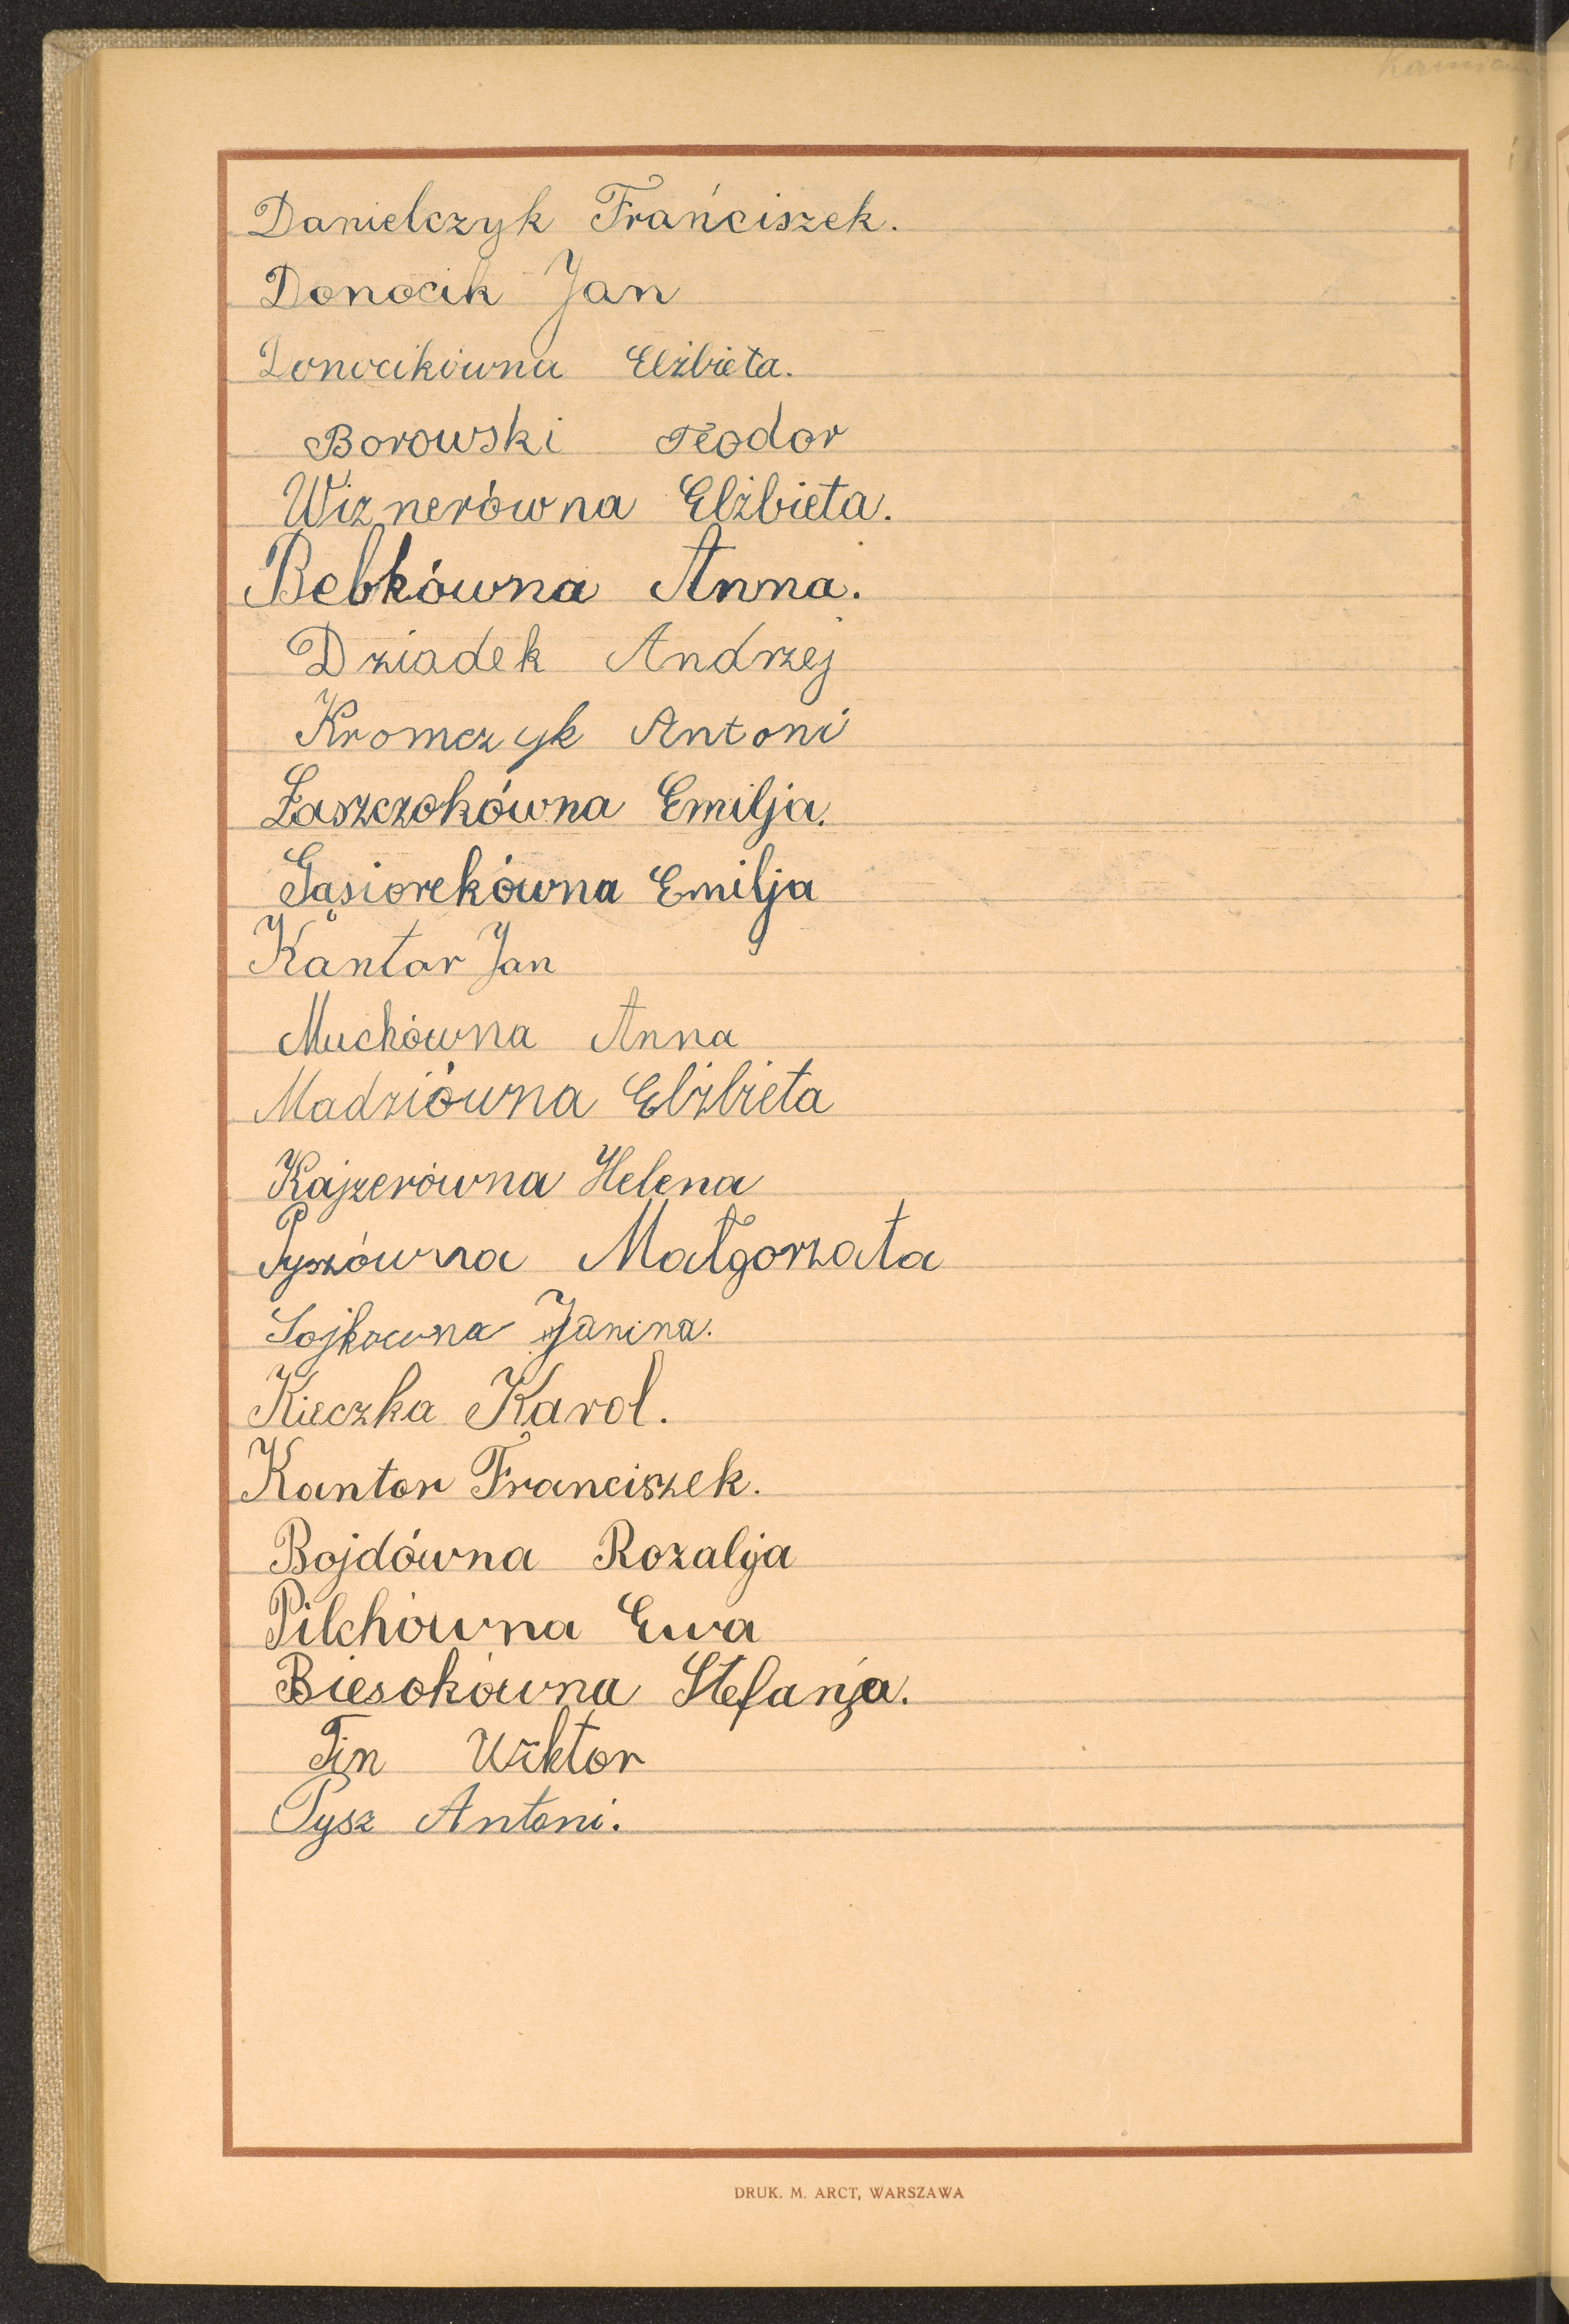 Danielczyk Frańciszek.
Donocik Jan
Donocikówna Elżbieta.
Borowski Teodor
Wiznerówna Elżbieta.
Bebkówna Anna.
Dziadek Andrzej
Kromczyk Antoni
Łaszczokówna Emilja.
Gąsiorekówna Emilja
Kantor Jan
Muchówna Anna
Madziówna Elżbieta
Kajzerówna Helena
Pyszówna Małgorzata
Sojkowna Janina.
Kieczka Karol.
Kantor Franciszek.
Bojdówna Rozalja
Pilchówna Ewa
Biesokówna Stefanja.
Tin Wiktor
Pysz Antoni.
DRUK. M. ARCT, WARSZAWA